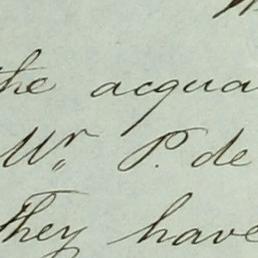 the acqua
Mr. P. de
They have